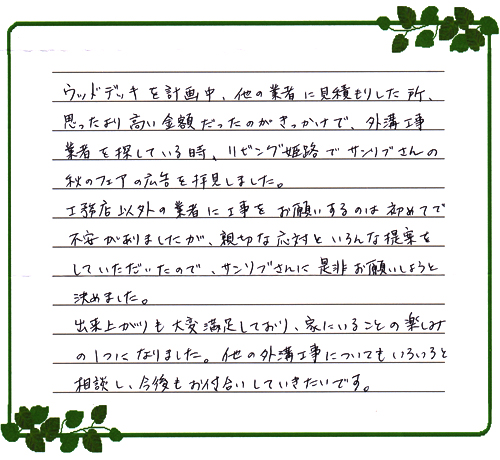 ウッドデッキを計画中、他の業者に見積もりした所、
思ったより高い金額だったのがきっかけで、外溝工事
業者を探している時、リビング姫路でサンリブさんの
秋のフェアの広告を拝見しました。
工務店以外の業者に工事をお願いするのは初めてで
不安がありましたが、親切な応対といろんな提案を
していただいたので、サンリブさんに是非お願いしようと
決めました。
出来上がりも大変満足しており、家にいることの楽しみ
の1つになりました。他の外溝工事についてもいろいろと
相談し、今後もお付合いしていきたいです。